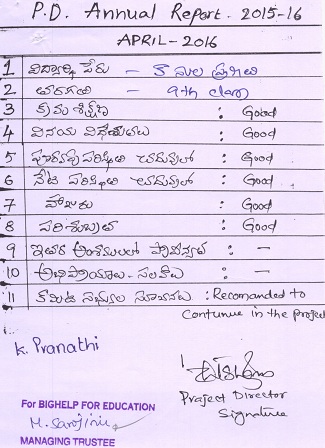 P.D. Annual Report. 2015-16
APRIL - 2016
1 విద్యార్థి పేరు - కొమల ప్రణతి
2 తరగతి - 9th class
3 క్రమశిక్షణ : Good
4 వినయ విధేయతలు : Good
5 పూర్వపు పరిస్థితి చదువులో : Good
6 నేటి పరిస్థితి చదువులో : Good
7 హాజరు : Good
8 పరిశుభ్రత : Good
9 ఇతర అంశములలో ప్రావీణ్యత : -
10 అభిప్రాయాలు - సలహాలు : -
11 కమిటి సభ్యుల సూచనలు : Recomanded to
Contunue in the project
K. Pranathi
Project Director
Signature
For BIGHELP FOR EDUCATION
M. Sarojini
MANAGING TRUSTEE